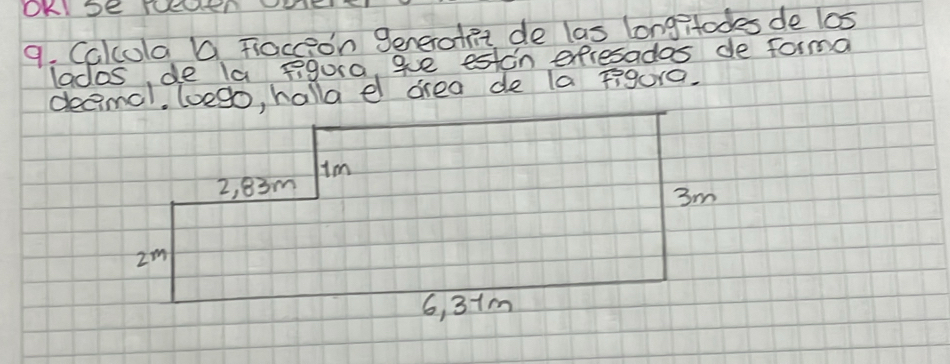 9. Calcula la Fracción generatriz de las longitudes de los
lados, de la figura, que están expresadas de forma
decimal. luego, halla el área de la figura.
1m
2,83m
3m
2m
6,31m